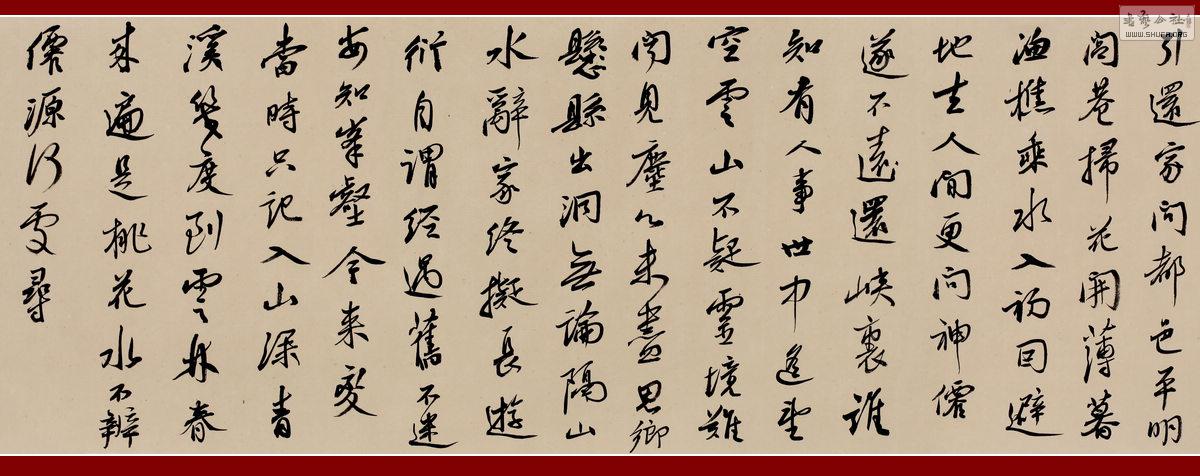 引還家問都邑平明
閭巷掃花開薄暮
漁樵乘水入初因避
地去人間更問神僊
遂不遠還峽裏誰
知有人事世中遙望
空雲山不疑靈境難
聞見塵心未盡思鄉
懸縣出洞無論隔山
水辭家終擬長遊
衍自謂經過舊不迷
安知峯壑今來變
當時只記入山深青
溪幾度到雲林春
來遍是桃花水不辨
僊源何處尋
WWW.SHUFA.ORG